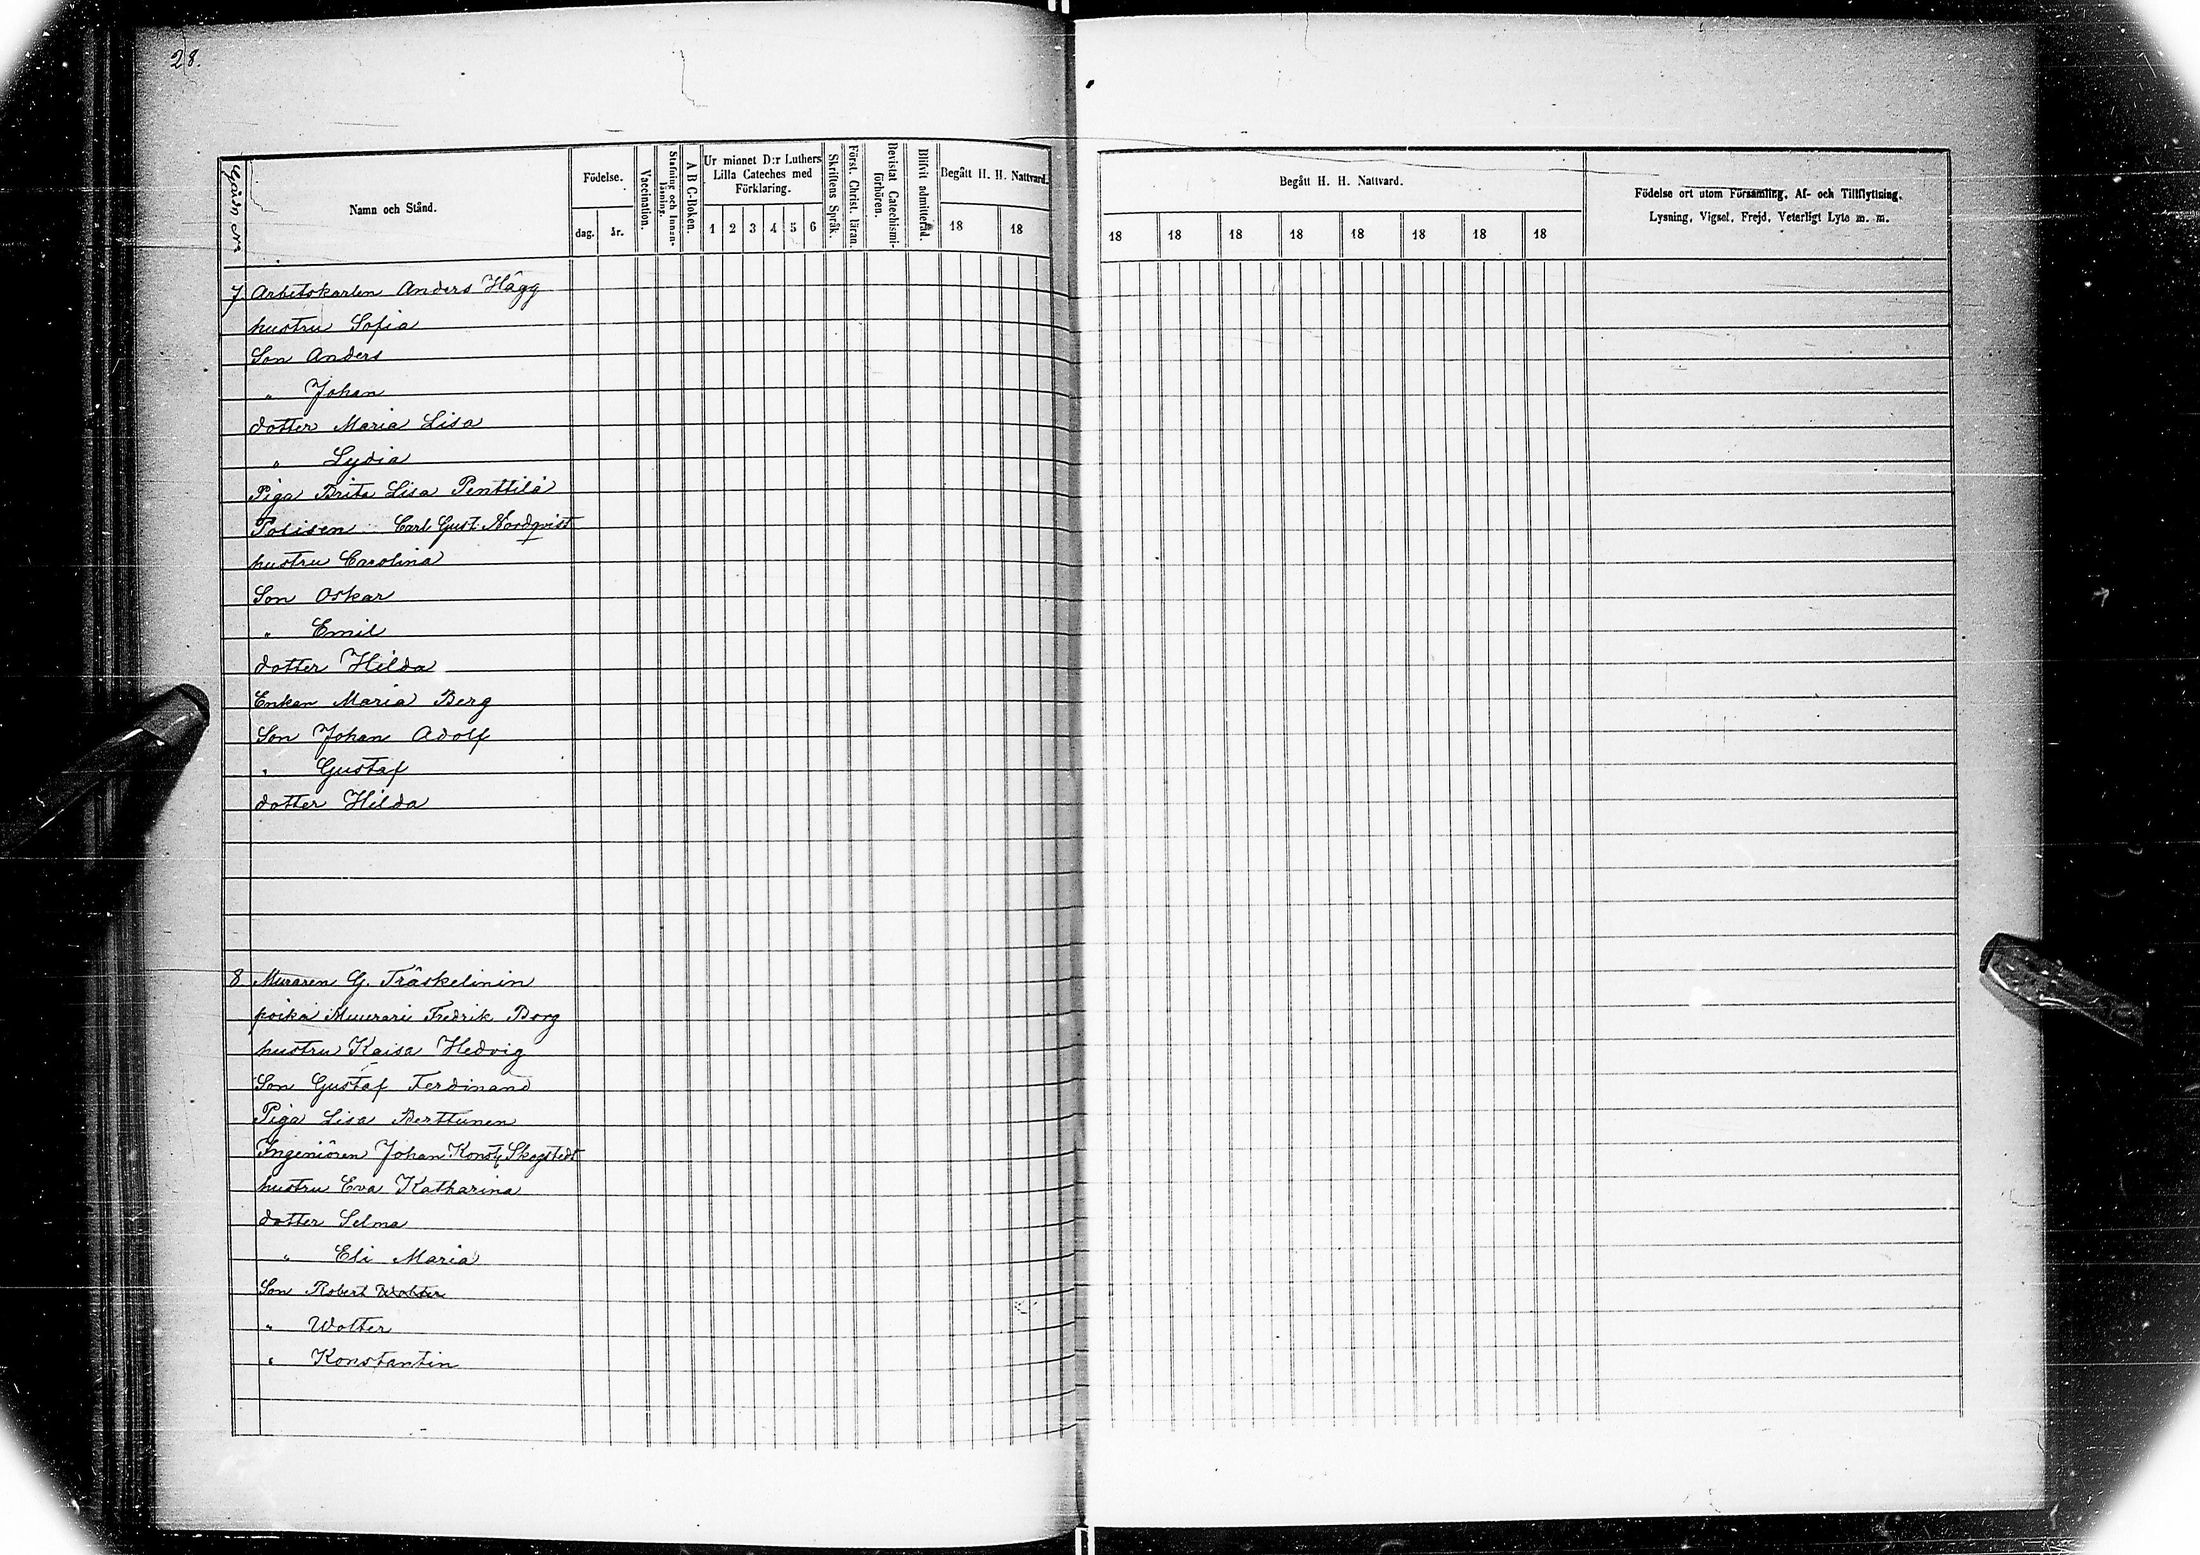 28.
Gårdn No
Namn och Stånd.
Födelse.
dag.
år.
Vaccination.
Stafning och Innan-
läsning.
A B C-Boken.
Ur minnet D:r Luthers
Lilla Cateches med
Förklaring.
1 2 3 4 5 6
Skriftens Språk.
Först. Christ. läran.
Bevistat Catechismi-
förhören.
Blifvit admitterad.
Begått H. H. Nattvard.
18 18
Begått H. H. Nattvard.
18 18 18 18 18 18 18 18
Födelse ort utom Församling, Af- och Tillflyttning,
Lysning, Vigsel, Frejd, Veterligt Lyte m. m.
7 Arbetskarlen Anders Hägg
hustru Sofia
Son Anders
" Johan
dotter Maria Lisa
" Lydia
Piga Brita Lisa Penttilä
Polisen Carl Gust. Nordqvist
hustru Carolina
Son Oskar
" Emil
dotter Hilda
Enkan Maria Berg
Son Johan Adolf
" Gustaf
dotter Hilda
8 Muraren G. Träskelinin
poika Muurari Fredrik Borg
hustru Kaisa Hedvig
Son Gustaf Ferdinand
Piga Lisa Berttunen
Ingeniören Johan Konst. Skogstedt
hustru Eva Katharina
dotter Selma
" Eli Maria
Son Robert Wolter
" Wolter
" Konstantin